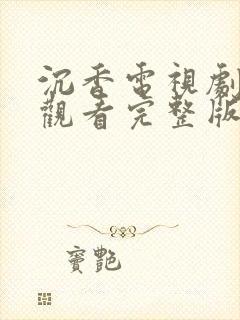 沉香電視劇
觀看完整版
寶艷